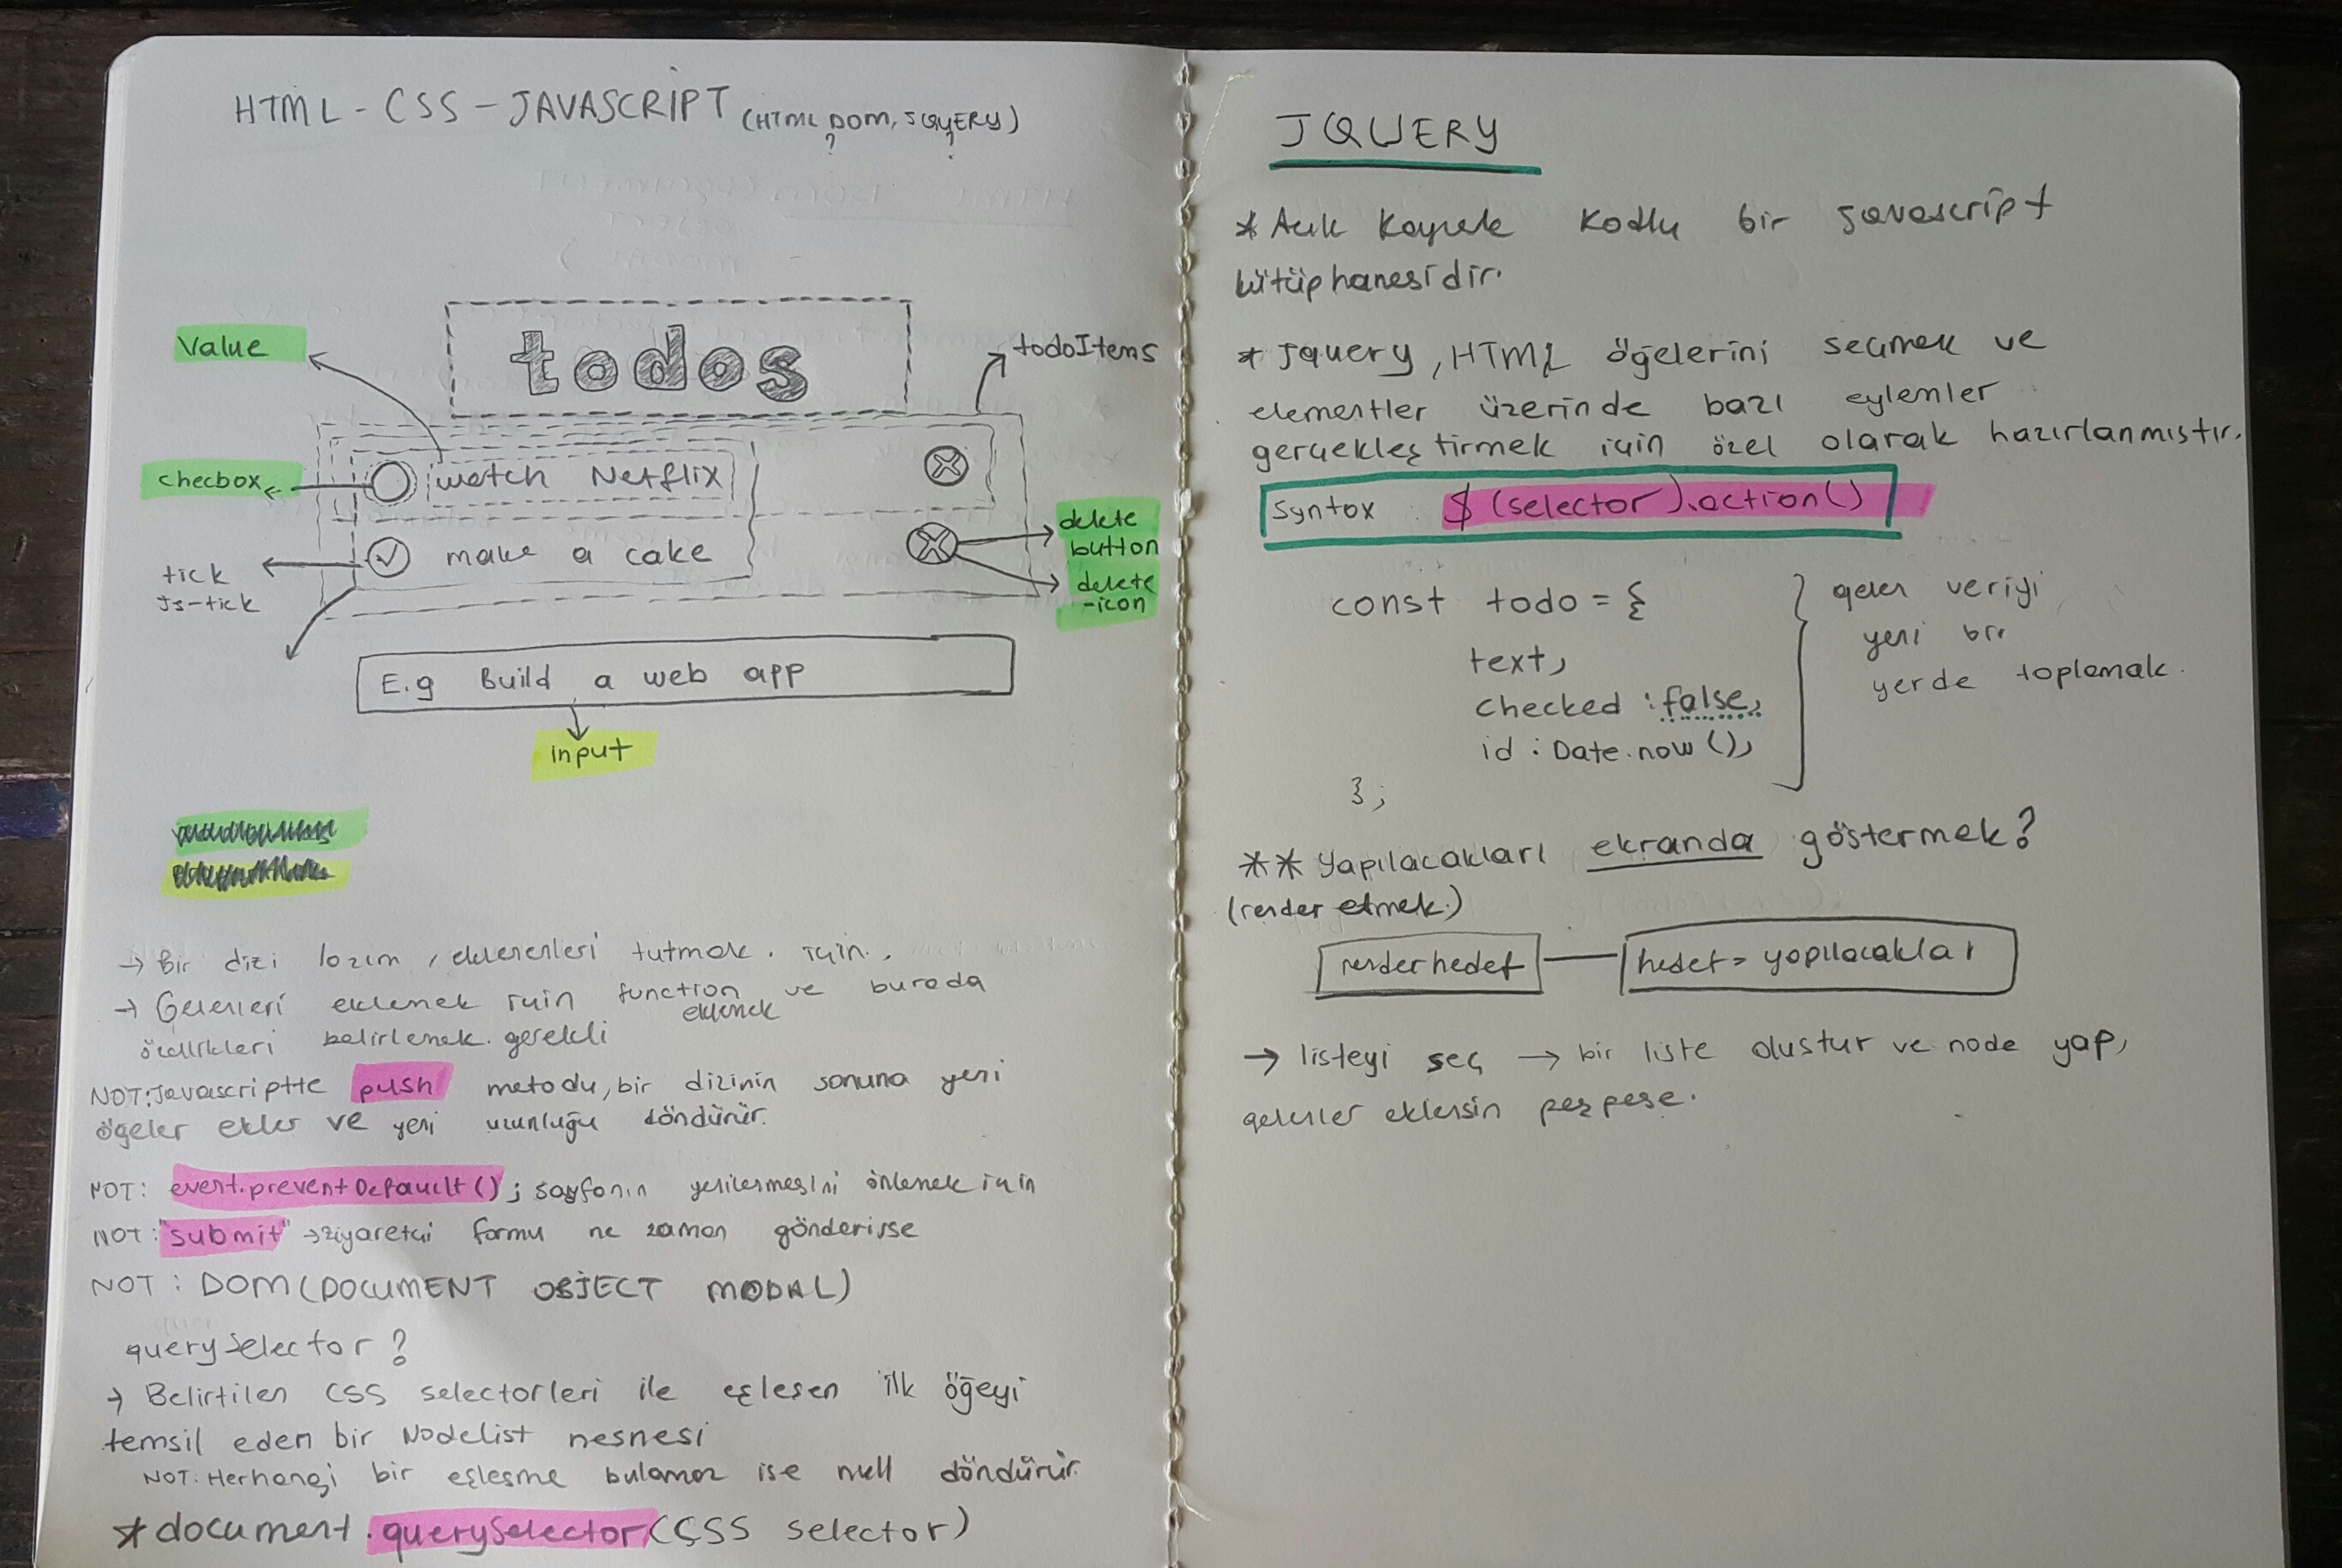 HTML - CSS - JAVASCRIPT (HTML DOM, JQUERY)
? ?
todos
Value
todoItems
checbox
watch Netflix
make a cake
delete
button
delete
-icon
tick
Js-tick
E.g Build a web app
input
→ Bir dizi lazım, eklenenleri tutmak. için.
→ Gelenleri eklemek için function ve burada
eklemek
özellikleri belirlemek. gerekli
NOT: Javascriptte push metodu, bir dizinin sonuna yeni
ögeler ekler ve yeni uzunluğu döndürür.
NOT: event.preventDefault(); sayfanın yenilenmesini önlemek için
NOT: "submit" → ziyaretçi formu ne zaman gönderirse
NOT: DOM (DOCUMENT OBJECT MODAL)
querySelector?
→ Belirtilen CSS selectorleri ile eşleşen ilk öğeyi
temsil eden bir Nodelist nesnesi
NOT: Herhangi bir eşleşme bulamaz ise null döndürür.
* document.querySelector(CSS selector)
JQUERY
* Açık kaynak kodlu bir javascript
kütüphanesidir.
* Jquery, HTML öğelerini seçmek ve
elementler üzerinde bazı eylemler
gerçekleştirmek için özel olarak hazırlanmıştır.
Syntax : $ (selector).action()
const todo = {
text,
checked : false,
id : Date.now(),
};
gelen veriyi
yeni bir
yerde toplamak.
** Yapılacakları ekranda göstermek?
(render etmek.)
renderhedef
hedef = yapılacaklar
→ listeyi seç → bir liste oluştur ve node yap,
gelenler eklensin peş peşe.